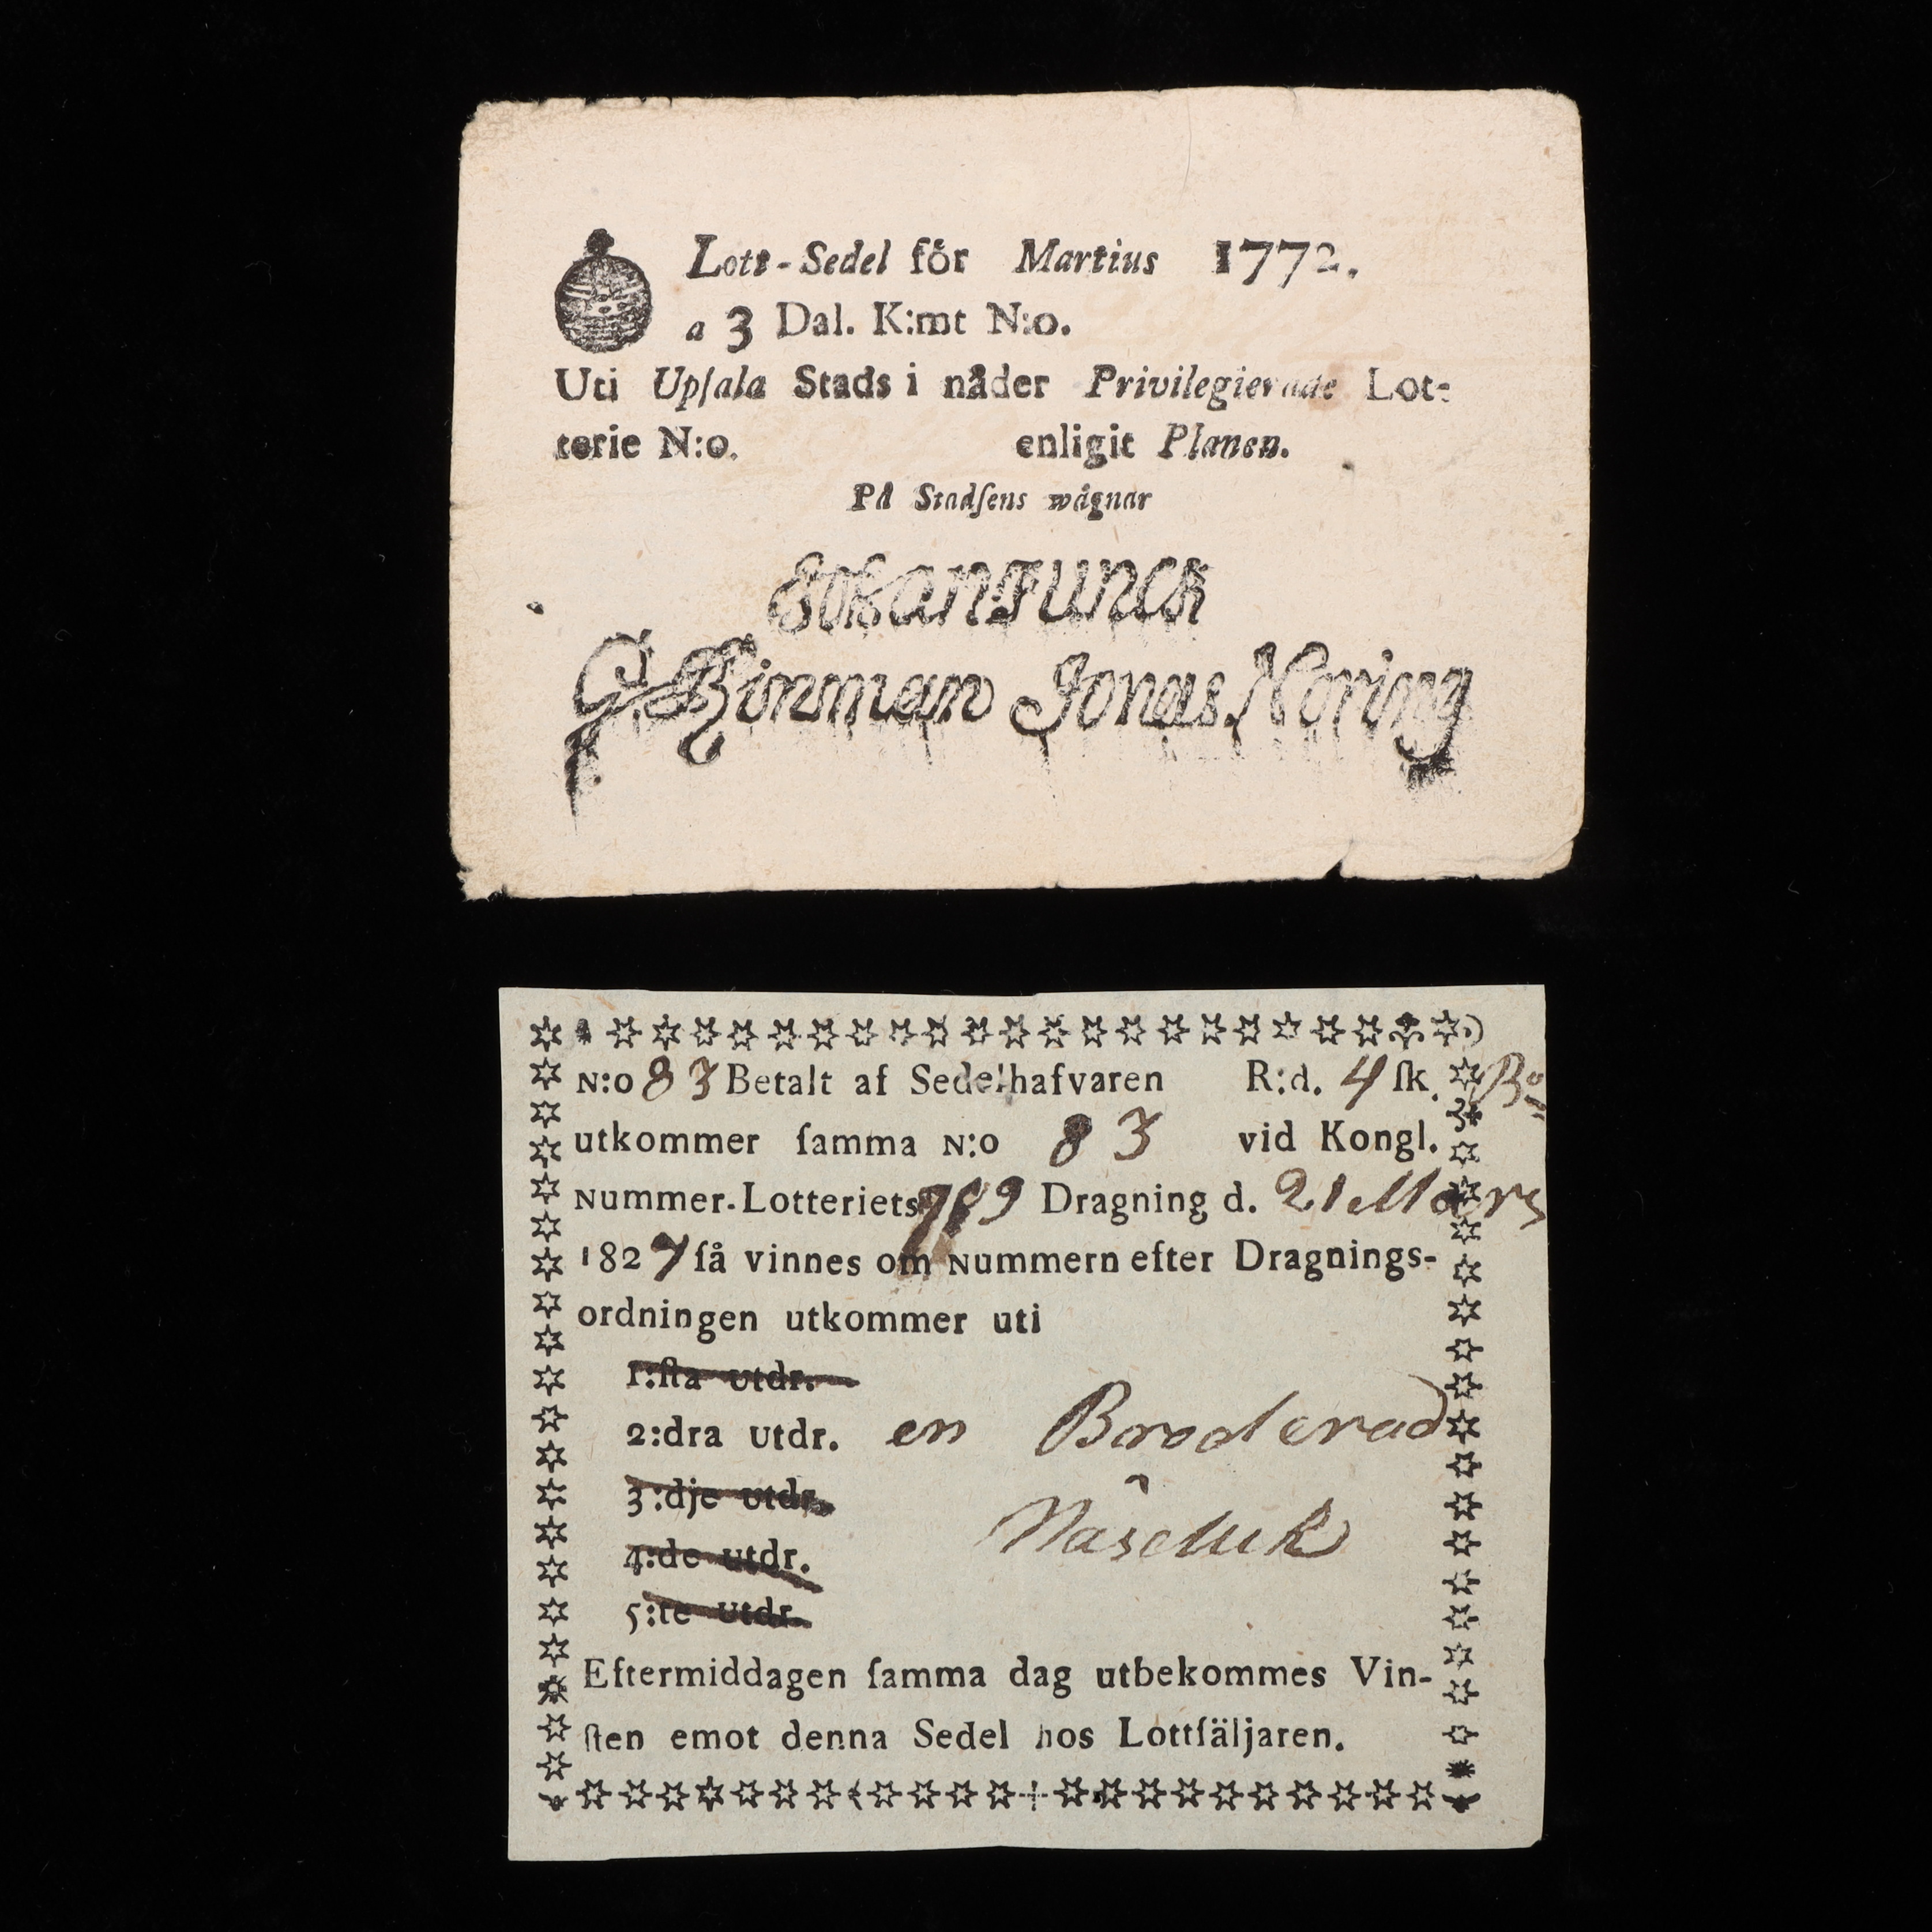 Lott-Sedel för Martius 1772.
a 3 Dal. K:mt N:o.
Uti Upſala Stads i nåder Privilegierade Lot-
terie N:o. enligit Planen.
På Stadſens wågnar
Johan Funck
Zinman Jonas Noring
N:o 83 Betalt af Sedelhafvaren R:d. 4 ſk. B:o
utkommer ſamma N:o 83 vid Kongl.
Nummer-Lotteriets Dragning d. 21 Mars
1827 ſå vinnes om Nummern efter Dragnings-
ordningen utkommer uti
1:ſta utdr.
2:dra utdr. en Broderad
3:dje utdr.
Näsduk
4:de utdr.
5:te utdr.
Eftermiddagen ſamma dag utbekommes Vin-
ſten emot denna Sedel hos Lottſäljaren.